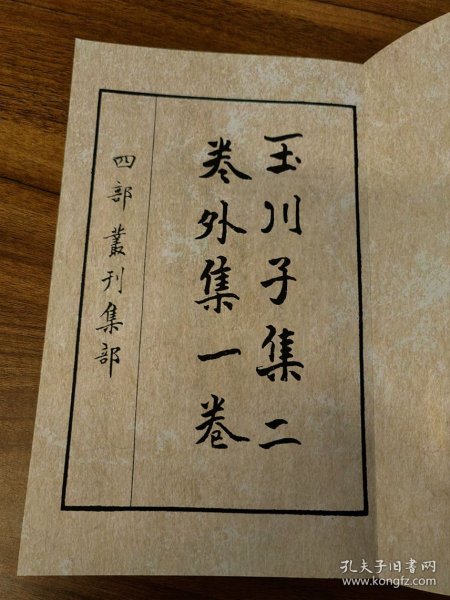 玉川子集二
卷外集一卷
四部叢刊集部
孔夫子旧书网
www.kongfz.com